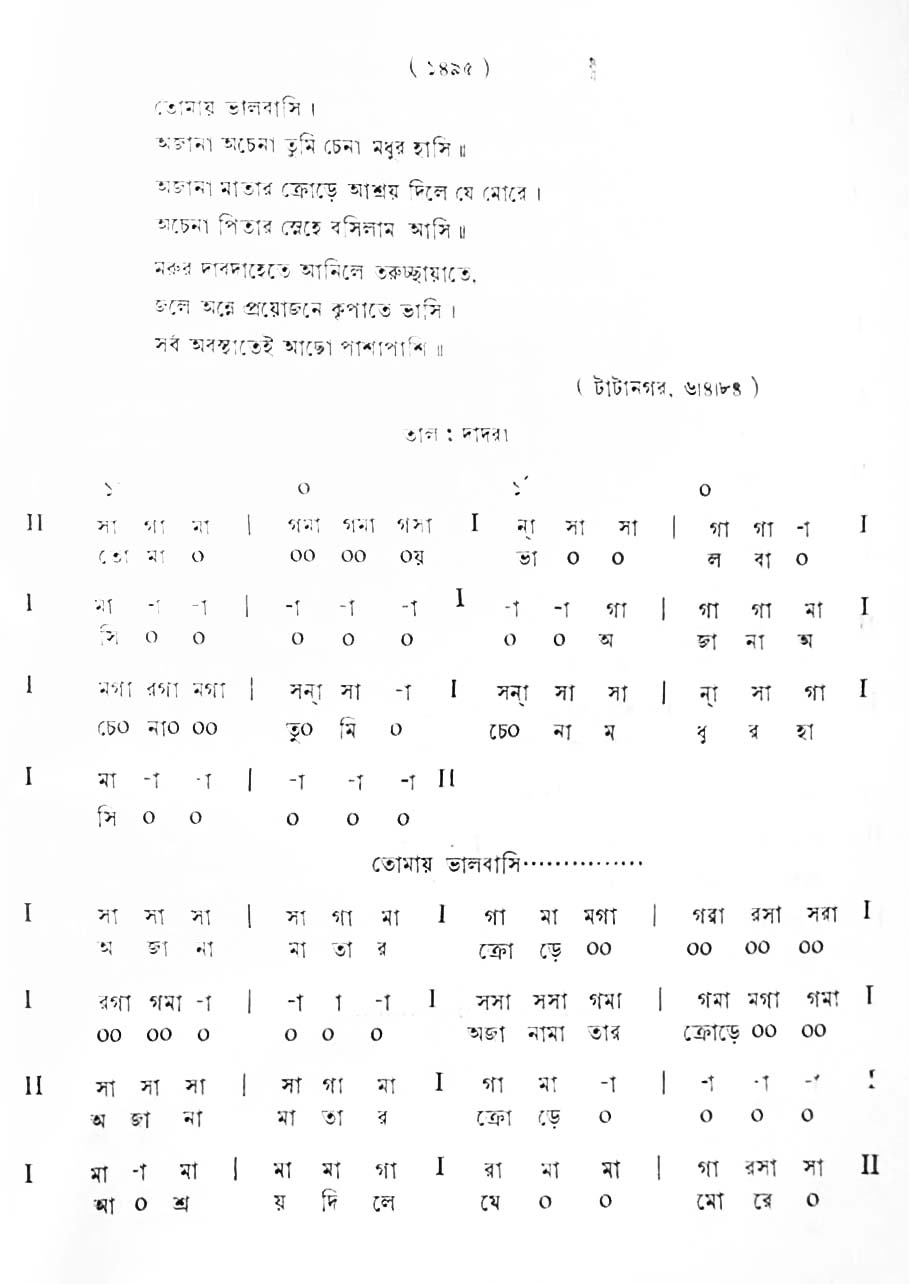 ( ১৪৯৫ )
তোমায় ভালবাসি ।
অজানা অচেনা তুমি চেনা মধুর হাসি ॥
অজানা মাতার ক্রোড়ে আশ্রয় দিলে যে মোরে ।
অচেনা পিতার স্নেহে বসিলাম আসি ॥
মরুর দাবদাহেতে আনিলে তরুচ্ছায়াতে,
জলে অন্নে প্রয়োজনে কৃপাতে ভাসি ।
সর্ব অবস্থাতেই আছো পাশাপাশি ॥
( টাটানগর, ৬।৪।৮৪ )
তাল : দাদরা
১ ০ ১´ ০
II সা গা মা | গমা গমা গসা I ন্‌া সা সা | গা গা -া I
তো মা ০ ০০ ০০ ০য় ভা ০ ০ ল বা ০
I মা -া -া | -া -া -া I -া -া গা | গা গা মা I
সি ০ ০ ০ ০ ০ ০ ০ অ জা না অ
I মগা রগা মগা | সন্‌া সা -া I সন্‌া সা সা | ন্‌া সা গা I
চে০ না০ ০০ তু০ মি ০ চে০ না ম ধু র হা
I মা -া -া | -া -া -া II
সি ০ ০ ০ ০ ০
তোমায় ভালবাসি···············
I সা সা সা | সা গা মা I গা মা মগা | গরা রসা সরা I
অ জা না মা তা র ক্রো ড়ে ০০ ০০ ০০ ০০
I রগা গমা -া | -া া -া I সসা সসা গমা | গমা মগা গমা I
০০ ০০ ০ ০ ০ ০ অজা নামা তার ক্রোড়ে ০০ ০০
II সা সা সা | সা গা মা I গা মা -া | -া -া -া I
অ জা না মা তা র ক্রো ড়ে ০ ০ ০ ০
I মা -া মা | মা মা গা I রা মা মা | গা রসা সা II
আ ০ শ্র য় দি লে যে ০ ০ মো রে ০